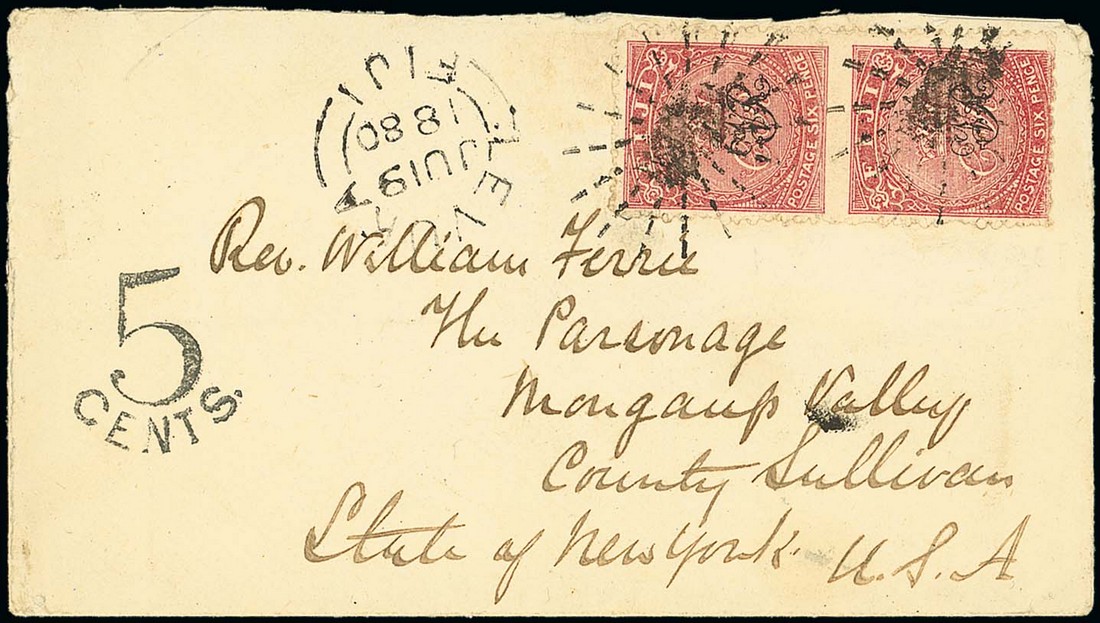 FIJI
LEVUKA
JU19
1880
FIJI
POSTAGE SIX PENCE
VR
FIJI
POSTAGE SIX PENCE
VR
Rev. William Ferrie
The Parsonage
Mongaup Valley
County Sullivan
State of New York. U. S. A
5
CENTS.